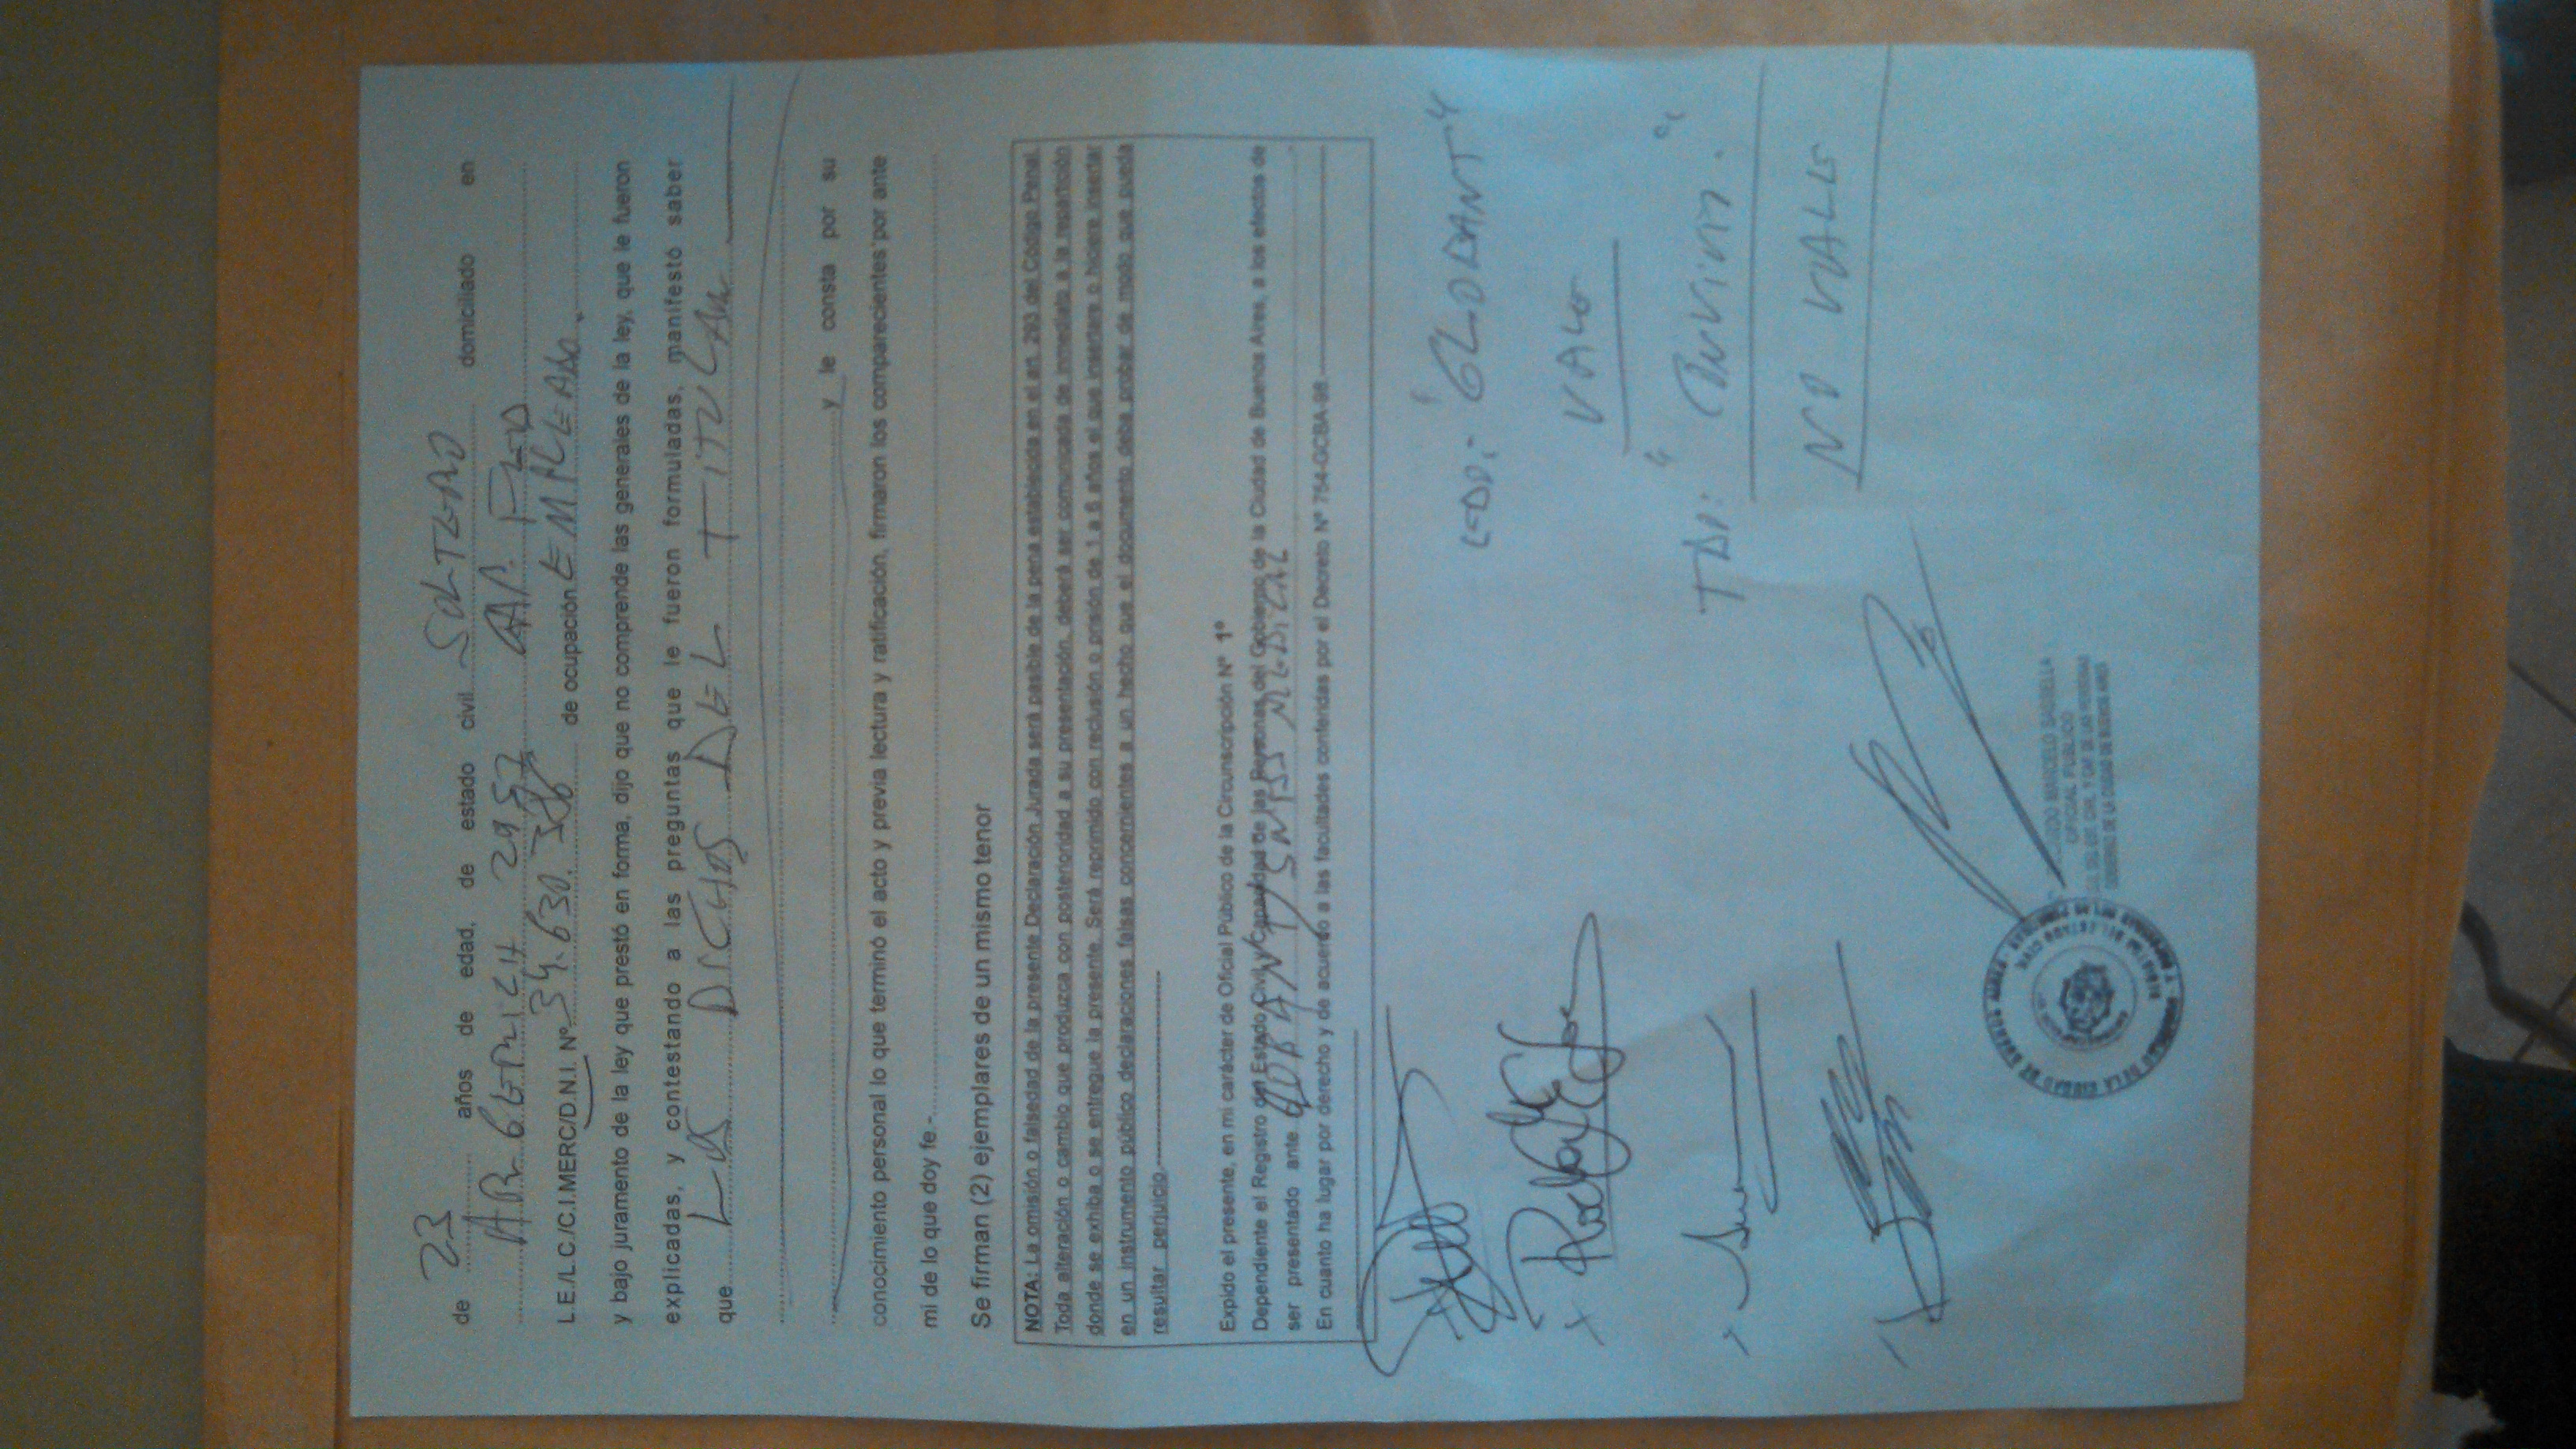 de 23 años de edad, de estado civil SOLTERO domiciliado en
2957
L.E./L.C./C.I.MERC/D.N.I. Nº 34.630. de ocupación EMPLEADO.
y bajo juramento de la ley que prestó en forma, dijo que no comprende las generales de la ley, que le fueron
explicadas, y contestando a las preguntas que le fueron formuladas, manifestó saber
que LOS DICHOS DEL TITULAR
y le consta por su
conocimiento personal lo que terminó el acto y previa lectura y ratificación, firmaron los comparecientes por ante
mi de lo que doy fe.-
Se firman (2) ejemplares de un mismo tenor
NOTA: La omisión o falsedad de la presente Declaración Jurada será pasible de la pena establecida en el art. 293 del Código Penal.
Toda alteración o cambio que produzca con posterioridad a su presentación, deberá ser comunicada de inmediato a la repartición
donde se exhiba o se entregue la presente. Será reprimido con reclusión o prisión de 1 a 6 años el que insertare o hiciere insertar
en un instrumento público declaraciones falsas concernientes a un hecho que el documento deba probar de modo que pueda
resultar perjuicio
Expido el presente, en mi carácter de Oficial Público de la Circunscripción Nº 1º
Dependiente el Registro del Estado Civil y Capacidad de las Personas del Gobierno de la Ciudad de Buenos Aires, a los efectos de
ser presentado ante
En cuanto ha lugar por derecho y de acuerdo a las facultades conferidas por el Decreto Nº 754-GCBA-98
VALE
NO VALE
OFICIAL PUBLICO
GOBIERNO DE LA CIUDAD DE BUENOS AIRES